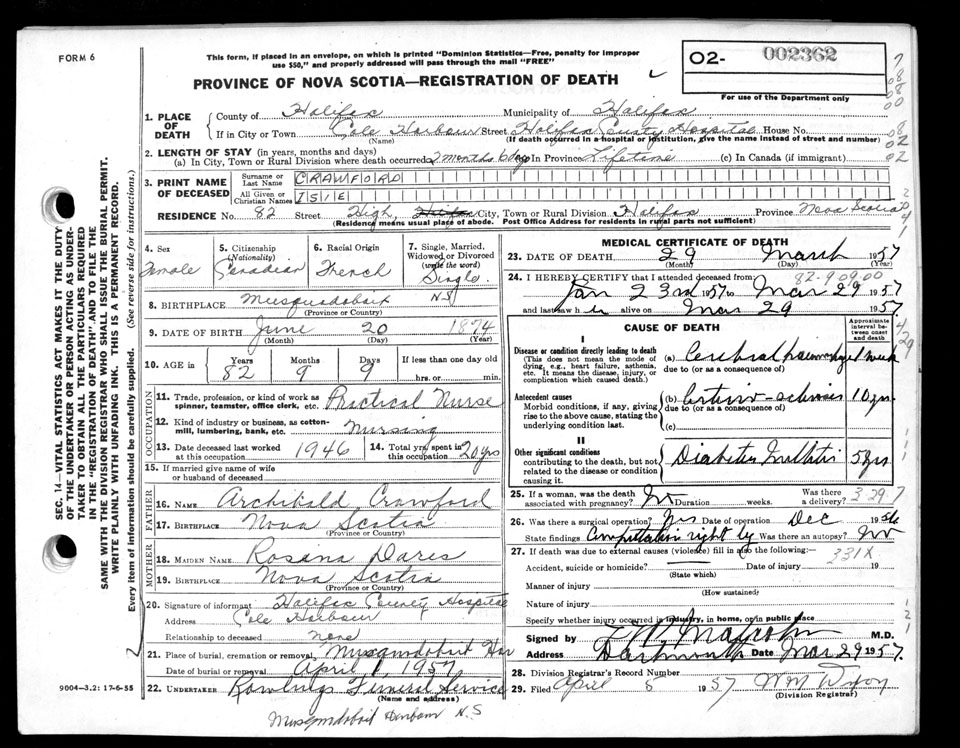 FORM 6
This form, if placed in an envelope, on which is printed "Dominion Statistics—Free, penalty for improper
use $50," and properly addressed will pass through the mail "FREE"
PROVINCE OF NOVA SCOTIA—REGISTRATION OF DEATH
02- 002362
For use of the Department only
1. PLACE OF DEATH
County of Halifax Municipality of Halifax
If in City or Town Cole Harbour Street Halifax County Hospital House No.
(Name) (If death occurred in a hospital or institution, give the name instead of street and number)
2. LENGTH OF STAY (in years, months and days)
(a) In City, Town or Rural Division where death occurred 2 months 6 days In Province Lifetime (c) In Canada (if immigrant)
3. PRINT NAME OF DECEASED
Surname or Last Name CRAWFORD
All Given or Christian Names ISIE
RESIDENCE No. 82 Street High, Halifax City, Town or Rural Division Halifax Province Nova Scotia
(Residence means usual place of abode. Post Office Address for residents in rural parts not sufficient)
4. Sex Female
5. Citizenship (Nationality) Canadian
6. Racial Origin French
7. Single, Married, Widowed or Divorced (write the word) Single
8. BIRTHPLACE Musquodoboit N.S
(Province or Country)
9. DATE OF BIRTH June 20 1874
(Month) (Day) (Year)
10. AGE in Years 82 Months 9 Days 9 If less than one day
hrs. or min.
OCCUPATION
11. Trade, profession, or kind of work as spinner, teamster, office clerk, etc. Practical Nurse
12. Kind of industry or business, as cotton-mill, lumbering, bank, etc. Nursing
13. Date deceased last worked at this occupation 1946
14. Total yrs spent in this occupation 20 yrs
15. If married give name of wife or husband of deceased
FATHER
16. NAME Archibald Crawford
17. BIRTHPLACE Nova Scotia
(Province or Country)
MOTHER
18. MAIDEN NAME Rosana Dares
19. BIRTHPLACE Nova Scotia
(Province or Country)
20. Signature of informant Halifax County Hospital
Address Cole Harbour
Relationship to deceased none
21. Place of burial, cremation or removal Musquodoboit Har
Date of burial or removal April 1, 1957
22. UNDERTAKER Rawlings Funeral Service
(Name and address)
Musquodoboit Harbour N.S
9004—3.2: 17-6-55
SEC. 14—VITAL STATISTICS ACT MAKES IT THE DUTY
OF THE UNDERTAKER OR PERSON ACTING AS UNDER-
TAKER TO OBTAIN ALL THE PARTICULARS REQUIRED
IN THE "REGISTRATION OF DEATH" AND TO FILE THE
SAME WITH THE DIVISION REGISTRAR WHO SHALL ISSUE THE BURIAL PERMIT.
WRITE PLAINLY WITH UNFADING INK. THIS IS A PERMANENT RECORD.
Every item of information should be carefully supplied. (See reverse side for instructions.)
MEDICAL CERTIFICATE OF DEATH
23. DATE OF DEATH 29 March 1957
(Month) (Day) (Year)
24. I HEREBY CERTIFY that I attended deceased from: 82-9 09.00
Jan 23rd 1957 to Mar 29 1957
and last saw h er alive on Mar 29 1957
CAUSE OF DEATH
Approximate interval between onset and death
I
Disease or condition directly leading to death (a) Cerebral haemorrhage 1 week
(This does not mean the mode of dying, e.g., heart failure, asthenia, etc. It means the disease, injury, or complication which caused death.)
due to (or as a consequence of)
Antecedent causes (b) Arterio-sclerosis 10 yrs
Morbid conditions, if any, giving rise to the above cause, stating the underlying condition last.
due to (or as a consequence of)
(c)
II
Other significant conditions Diabetes Mellitis 5 yrs
contributing to the death, but not related to the disease or condition causing it.
25. If a woman, was the death associated with pregnancy? No Duration weeks. Was there a delivery? 3 29 7
26. Was there a surgical operation? Yes Date of operation Dec 1956
State findings Amputation right leg Was there an autopsy? No
27. If death was due to external causes (violence) fill in also the following:—
331X
Accident, suicide or homicide? Date of injury 19
(State which)
Manner of injury
(How sustained)
Nature of injury
Specify whether injury occurred in industry, in home, or in public place
Signed by M.D.
Address Dartmouth Date Mar 29 1957
28. Division Registrar's Record Number
29. Filed April 5 1957
(Division Registrar)